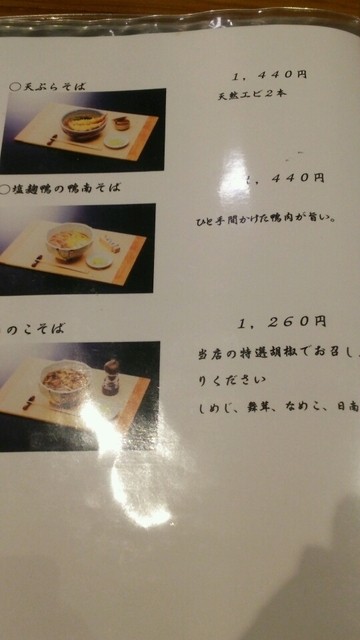 〇天ぷらそば
1，440円
天然エビ2本
〇塩麹鴨の鴨南そば
1，440円
ひと手間かけた鴨肉が旨い。
のこそば
1，260円
当店の特選胡椒でお召し
りください
しめじ、舞茸、なめこ、日南